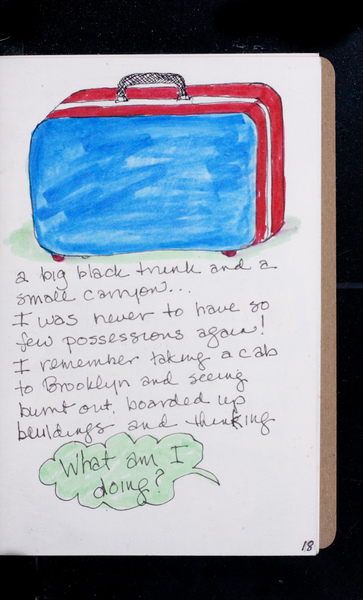 a big black trunk and a
small carryon...
I was never to have so
few possessions again!
I remember taking a cab
to Brooklyn and seeing
burnt out, boarded up
buildings and thinking
What am I
doing?
18